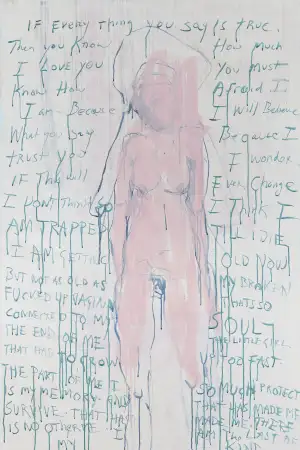 IF EVERY THING YOU SAY IS TRUE.
Then you Know How Much
I LOVE YOU You Must
Know How Afraid I
I am Because I Will Become
What you Say Because I
trust you I wonder
IF This will Ever Change
I DON'T Think I
AM TRAPPED TILL I DIE
I AM GETTING OLD NOW
BUT NOT AS OLD AS MY BROKEN
FUCKED UP VAGINA THATS SO
CONNECTED TO MY SOUL
THE END OF ME THE LITTLE GIRL
THAT HAD TO GROW UP TOO FAST
THE PART OF ME I SO MUCH PROTECT
IS MY MEMORY AND THAT HAS MADE ME
SURVIVE THAT HAS MADE ME THERE
IS NO OTHER ME I AM THE LAST OF
MY KIND